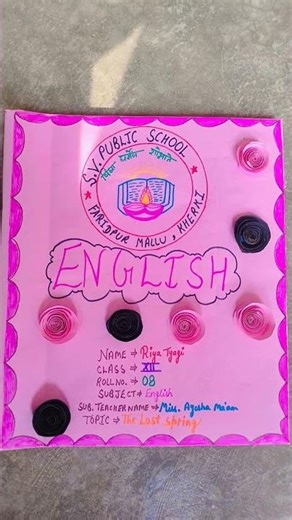 S.V. PUBLIC SCHOOL
विद्या धर्मेण शोभते
FARIDPUR MALLU, KHERKI
ENGLISH
NAME ⇒ Riya Tyagi
CLASS ⇒ XII
ROLL NO. ⇒ 08
SUBJECT ⇒ English
SUB. TEACHER NAME ⇒ Miss. Ayesha Ma'am
TOPIC ⇒ The Lost Spring